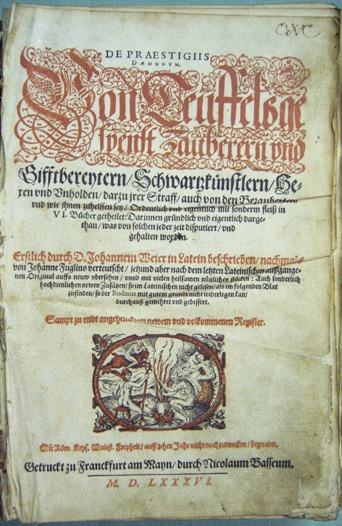 DE PRAESTIGIIS
DÆMONVM.
Von Teuffelsge
spenst Zauberern vnd
Gifftbereytern / Schwartzkünstlern / He-
xen vnd Vnholden / darzu jrer Straff / auch von den Bezauberten
vnd wie jhnen zuhelffen sey / Ordentlich vnd eigentlich mit sonderm fleiß in
VI. Bücher getheilet: Darinnen gründlich vnd eigentlich darge-
than / was von solchen jeder zeit disputiert / vnd
gehalten worden.
Erstlich durch D. Johannem Weier in Latein beschrieben / nachmals
von Johanne Fuglino verteutscht / jetzund aber nach dem letzten Lateinischen außgange-
nen Original auffs neuw vbersehen / vnnd mit vielen heilsamen nützlichen Auch sonderlich
hochdienlichen newen Zusätzen / so im Lateinischen nicht gelesen / als im folgenden Blat
zufinden / so der Bodinus mit gutem grundt nicht widerlegen kan /
durchauß gemehret vnd gebessert.
Sampt zu endt angehencktem newem vnd vollkommenen Register.
Mit Röm. Keys. Maiest. Freyheit / auff zehen Jahr nicht nachzudrucken / begnadet.
Getruckt zu Franckfurt am Mayn / durch Nicolaum Basseum.
M. D. LXXXVI.